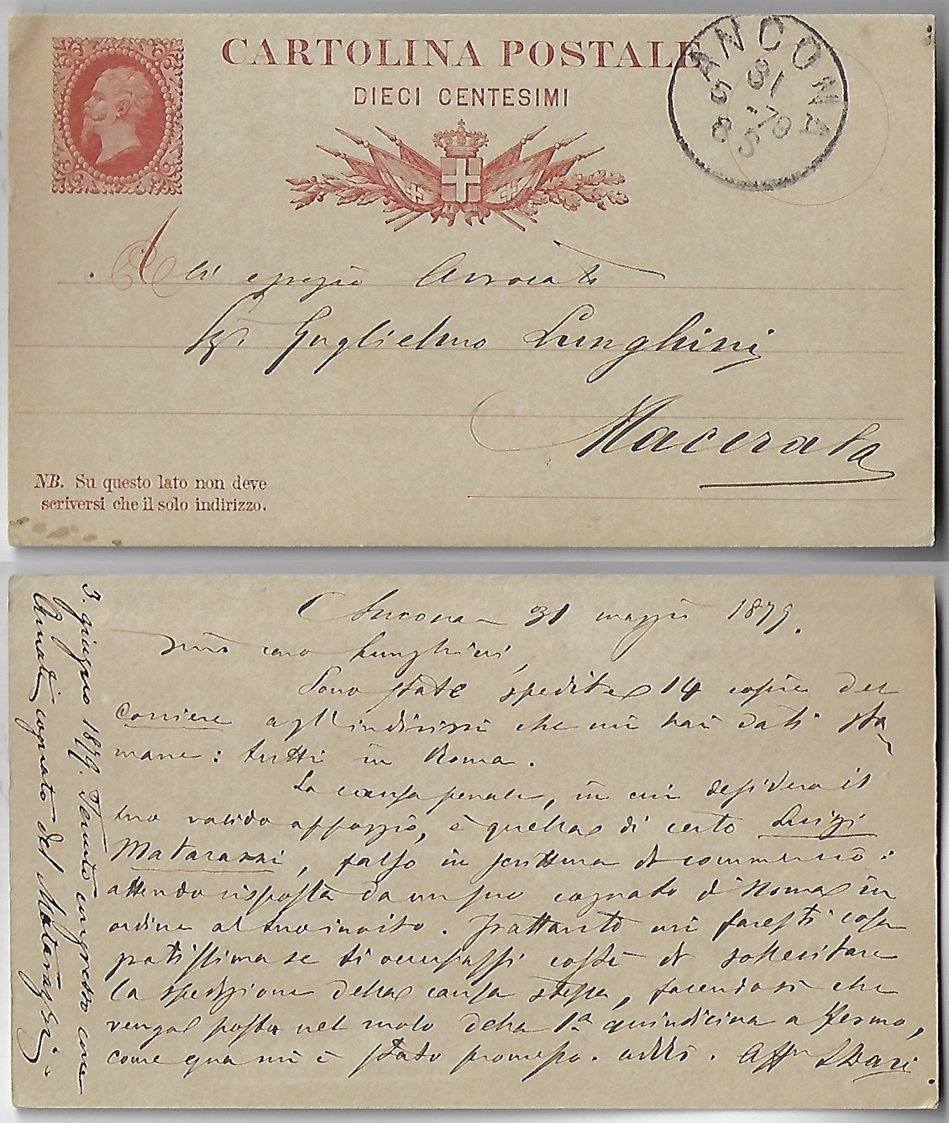 CARTOLINA POSTALE
DIECI CENTESIMI
ANCONA
31
5-79
8 S
All' egregio Avvocato
Sigr Guglielmo Lunghini
Macerata
NB. Su questo lato non deve
scriversi che il solo indirizzo.
Ancona 31 maggio 1879.
Mio caro Lunghini,
Sono state spedite 14 copie del
Corriere agl'indirizzi che mi hai dati sta
mane: tutti in Roma.
La causa penale, in cui desidera il
tuo valido appoggio, è quella di certo Luigi
Matarazzi, falso in scrittura di commercio:
attendo risposta da un suo cognato di Roma in
ordine al tuo invito. Frattanto mi faresti cosa
gratissima se ti occupassi costì di sollecitare
la spedizione della causa stessa, facendo sì che
venga posta nel ruolo della 1ª quindicina a Fermo,
come qua mi è stato promesso. addio. Affmo
3. giugno 1879. Tenuto congresso con
cognato del Matarazzi.